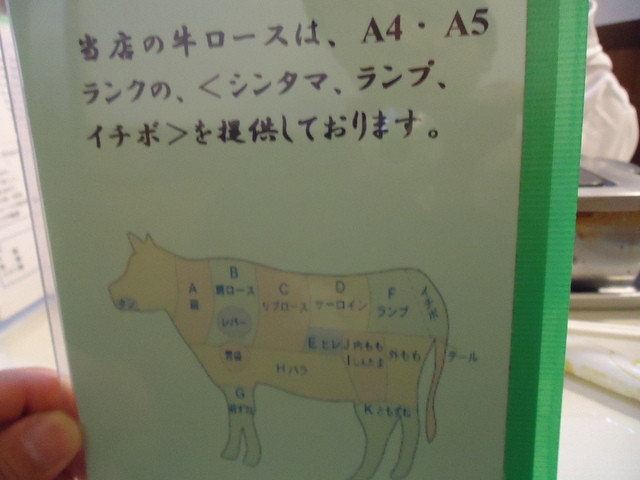 当店の牛ロースは、A4・A5
ランクの、＜シンタマ、ランプ、
イチボ＞を提供しております。
タン
A
B
肩ロース
C
リブロース
D
サーロイン
F
ランプ
イチボ
レバー
E ヒレ
J 内もも
I しんたま
外もも
テール
H バラ
G
K ともずね